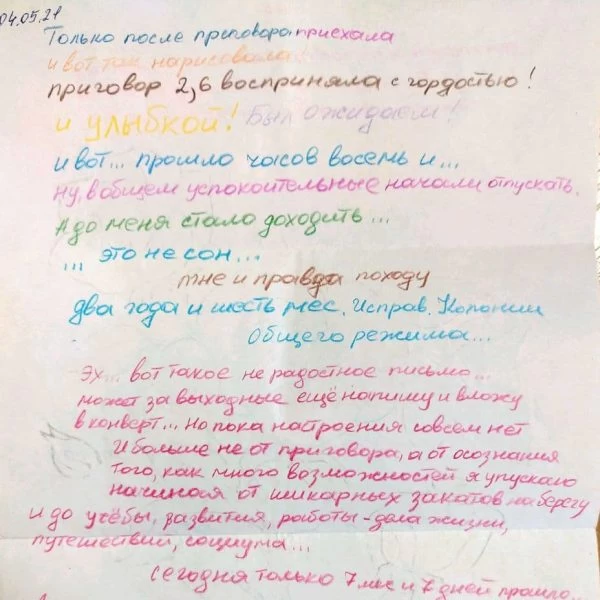 04.05.21
Только после приговора приехала
и вот так нарисовала!
приговор 2,6 восприняла с гордостью!
и улыбкой! Был ожидаем!
и вот... прошло часов восемь и...
ну, в общем успокоительные начали отпускать.
А до меня стало доходить...
... это не сон...
мне и правда походу
два года и шесть мес. Исправ. Колонии
Общего режима...
Эх... вот такое не радостное письмо...
может за выходные ещё напишу и вложу
в конверт... Но пока настроения совсем нет
И больше не от приговора, а от осознания
того, как много возможностей я упускаю
начиная от шикарных закатов на берегу
и до учёбы, развития, работы - дела жизни,
путешествий, социума...
сегодня только 7 мес и 7 дней прошло..